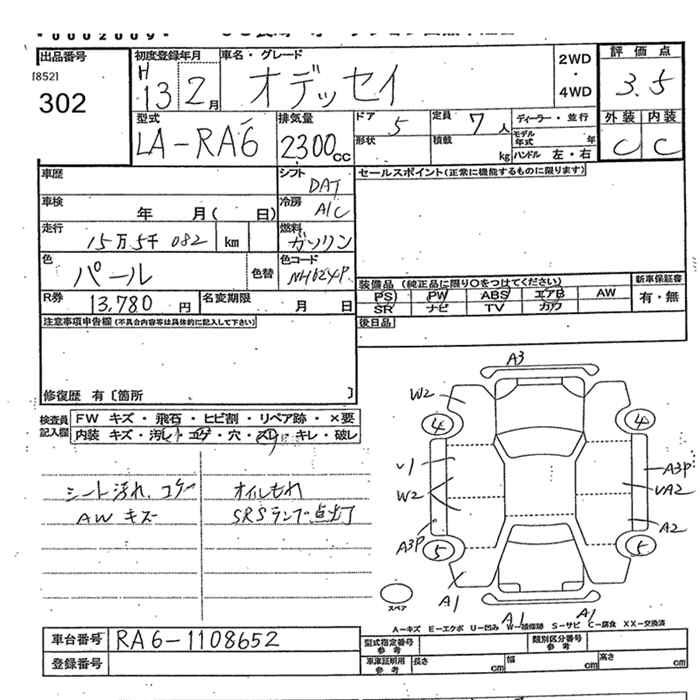 "0002009"
出品番号
[852]
302
初度登録年月
H 13 2月
車名・グレード
オデッセイ
2WD
・
4WD
評価点
3.5
型式
LA-RA6
排気量
2300cc
ドア
5
形状
定員
7人
積載
kg
ディーラー・並行
モデル年式 年
ハンドル 左・右
外装 内装
C C
車歴
シフト
DAT
セールスポイント(正常に機能するものに限ります)
車検
年 月( 日)
冷房
A/C
走行
15万5千082 km
燃料
ガソリン
色
パール
色替
色コード
NH624P
R券
13,780円
名変期限
月 日
装備品 (純正品に限り○をつけてください)
PS PW ABS エアB AW
SR ナビ TV カワ
新車保証書
有・無
注意事項申告欄(不具合内容等は具体的に記入して下さい)
後日品
修復歴 有〔箇所 〕
検査員記入欄
FW キズ・飛石・ヒビ割・リペア跡・×要
内装 キズ・汚れ・コゲ・穴・スレ・キレ・破レ
シート汚れ、コゲ
AWキズ
オイルもれ
SRSランプ点灯
A3
W2
4
4
W2
A3P
VA2
A2
A3P
5
5
A1
スペア
A1
A1
A-キズ E-エクボ U-凹み W-補修跡 S-サビ C-腐食 XX-交換済
車台番号
RA6-1108652
登録番号
型式指定番号 参考
類別区分番号 参考
車庫証明用 参考
長さ cm
幅 cm
高さ cm